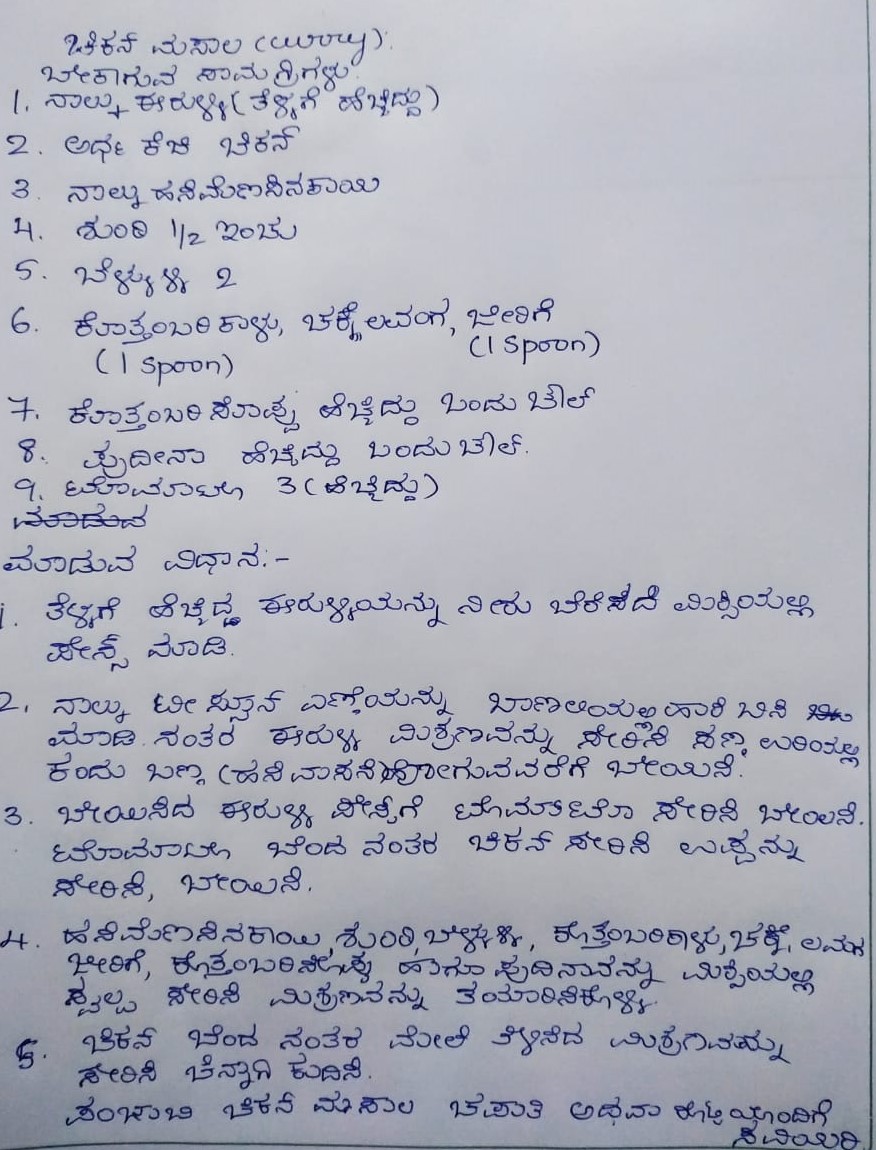 ಚಿಕನ್ ಮಸಾಲ (curry).
ಬೇಕಾಗುವ ಸಾಮಗ್ರಿಗಳು.
1. ನಾಲ್ಕು ಈರುಳ್ಳಿ (ತೆಳ್ಳಗೆ ಹೆಚ್ಚಿದ್ದು)
2. ಅರ್ಧ ಕೆಜಿ ಚಿಕನ್
3. ನಾಲ್ಕು ಹಸಿಮೆಣಸಿನಕಾಯಿ
4. ಶುಂಠಿ 1/2 ಇಂಚು
5. ಬೆಳ್ಳುಳ್ಳಿ 2
6. ಕೊತ್ತಂಬರಿ ಕಾಳು, ಚಕ್ಕೆ ಲವಂಗ, ಜೀರಿಗೆ
(1 spoon) (1 spoon)
7. ಕೊತ್ತಂಬರಿ ಸೊಪ್ಪು ಹೆಚ್ಚಿದ್ದು ಒಂದು ಬೌಲ್
8. ಪುದೀನಾ ಹೆಚ್ಚಿದ್ದು ಒಂದು ಬೌಲ್.
9. ಟೊಮಾಟೋ 3 (ಹೆಚ್ಚಿದ್ದು)
ಮಾಡುವ
ಮಾಡುವ ವಿಧಾನ:-
1. ತೆಳ್ಳಗೆ ಹೆಚ್ಚಿದ್ದ ಈರುಳ್ಳಿಯನ್ನು ನೀರು ಬೆರೆಸದೆ ಮಿಕ್ಸಿಯಲ್ಲಿ
ಪೇಸ್ಟ್ ಮಾಡಿ.
2. ನಾಲ್ಕು ಟೀ ಸ್ಪೂನ್ ಎಣ್ಣೆಯನ್ನು ಬಾಣಲೆಯಲ್ಲಿ ಹಾಕಿ ಬಿಸಿ
ಮಾಡಿ. ನಂತರ ಈರುಳ್ಳಿ ಮಿಶ್ರಣವನ್ನು ಸೇರಿಸಿ ಸಣ್ಣ ಉರಿಯಲ್ಲಿ
ಕಂದು ಬಣ್ಣ (ಹಸಿ ವಾಸನೆ) ಹೋಗುವವರೆಗೆ ಬೇಯಿಸಿ.
3. ಬೇಯಿಸಿದ ಈರುಳ್ಳಿ ಪೇಸ್ಟ್‌ಗೆ ಟೊಮಾಟೊ ಸೇರಿಸಿ ಬೇಯಿಸಿ.
ಟೊಮಾಟೋ ಬೆಂದ ನಂತರ ಚಿಕನ್ ಸೇರಿಸಿ ಉಪ್ಪನ್ನು
ಸೇರಿಸಿ, ಬೇಯಿಸಿ.
4. ಹಸಿಮೆಣಸಿನಕಾಯಿ, ಶುಂಠಿ, ಬೆಳ್ಳುಳ್ಳಿ, ಕೊತ್ತಂಬರಿಕಾಳು, ಚಕ್ಕೆ, ಲವಂಗ
ಜೀರಿಗೆ, ಕೊತ್ತಂಬರಿ ಸೊಪ್ಪು ಹಾಗೂ ಪುದಿನಾವನ್ನು ಮಿಕ್ಸಿಯಲ್ಲಿ
ಸ್ವಲ್ಪ ಸೇರಿಸಿ ಮಿಶ್ರಣವನ್ನು ತಯಾರಿಸಿಕೊಳ್ಳಿ.
5. ಚಿಕನ್ ಬೆಂದ ನಂತರ ಮೇಲೆ ತಿಳಿಸಿದ ಮಿಶ್ರಣವನ್ನು
ಸೇರಿಸಿ ಚೆನ್ನಾಗಿ ಕುದಿಸಿ.
ಪಂಜಾಬಿ ಚಿಕನ್ ಮಸಾಲ ಚಪಾತಿ ಅಥವಾ ರೊಟ್ಟಿಯೊಂದಿಗೆ
ಸವಿಯಿರಿ